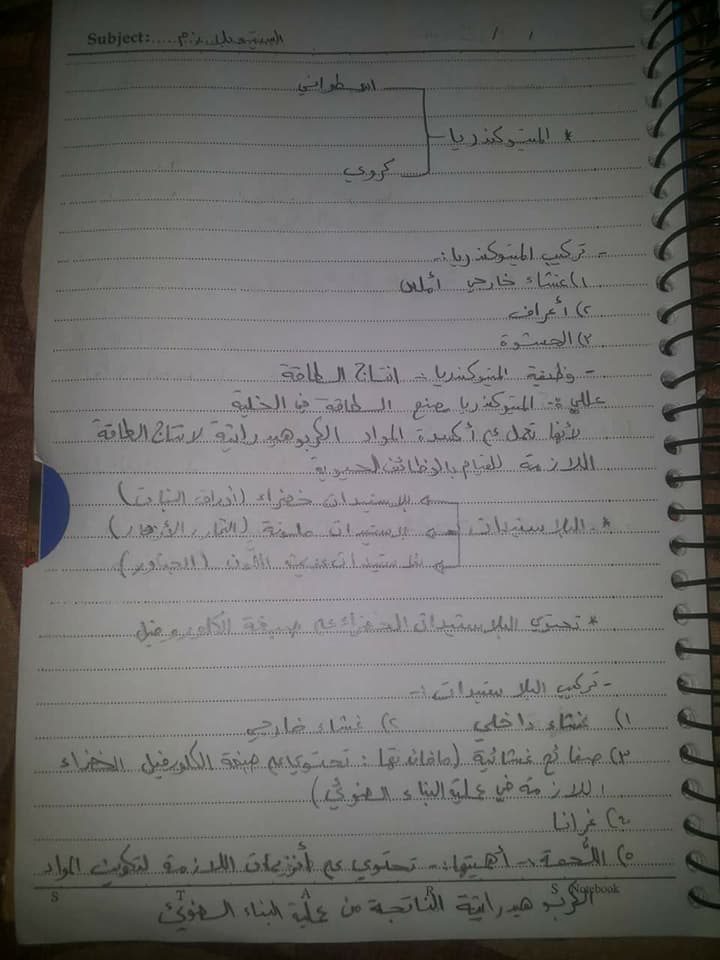 Subject:.....
/ /
اسطواني
* الميتوكندريا
كروي
- تركيب الميتوكندريا :-
١) غشاء خارجي أملس
٢) أعراف
٣) الحشوة
- وظيفة الميتوكندريا :- انتاج الطاقة
عللي :- الميتوكندريا مصنع الطاقة في الخلية
لأنها تعمل ع أكسدة المواد الكربوهيدراتية لانتاج الطاقة
اللازمة للقيام بالوظائف الحيوية
بلاستيدات خضراء (أوراق النبات)
* البلاستيدات بلاستيدات ملونة (الثمار، الأزهار)
بلاستيدات عديمة اللون (الجذور)
* تحتوي البلاستيدات الخضراء ع صبغة الكلوروفيل
- تركيب البلاستيدات :-
١) غشاء داخلي ٢) غشاء خارجي
٣) صفائح غشائية (مافائدتها : تحتوي ع صبغة الكلورفيل الخضراء
اللازمة في عملية البناء الضوئي)
٤) غرانا
٥) اللُّحمة :- أهميتها :- تحتوي ع أنزيمات اللازمة لتكوين المواد
S T A R S Notebook
الكربوهيدراتية الناتجة من عملية البناء الضوئي